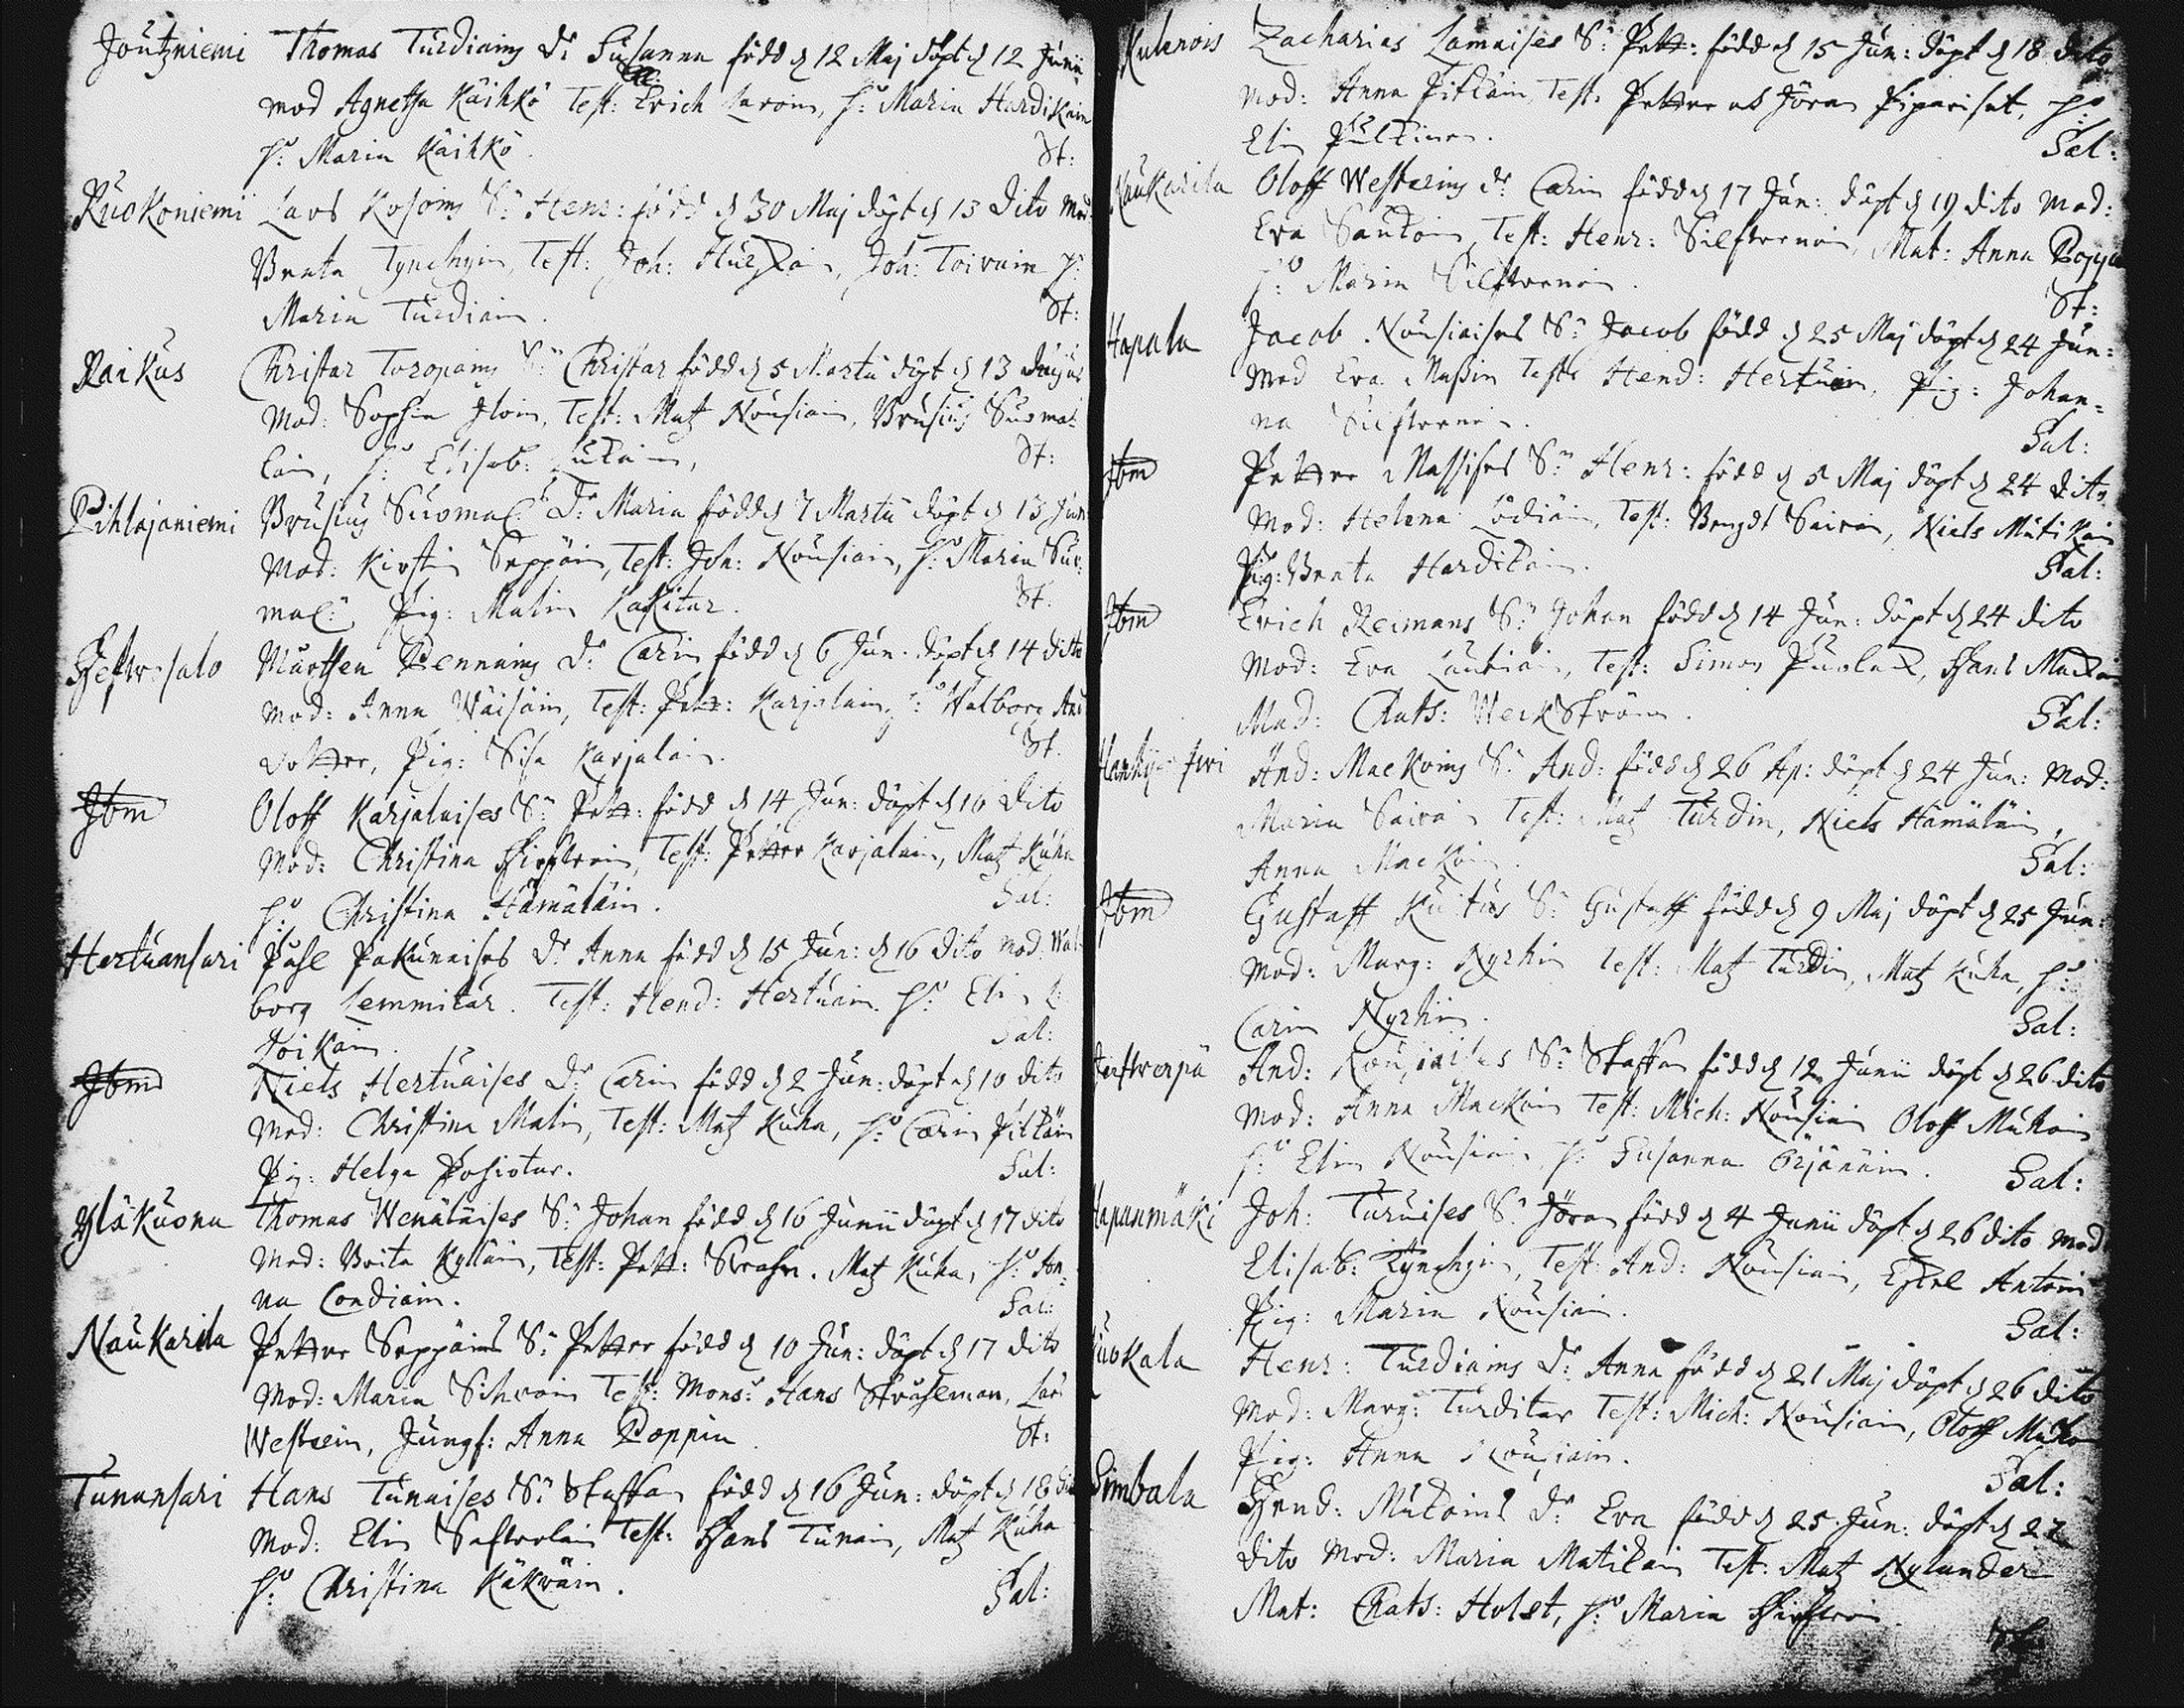 Joutzniemi Thomas Turdiains Dr Susanna född d 12 Maj döpt d 12 Junii
Mod Agnetha Käihkö Test: Erich Laroin, H: Maria Hardikain
H: Maria Käihkö. St:
Kuokoniemi Lars Kosoins Sn Henr: född d 30 Maj döpt d 13 Dito Mod:
Beata Tynchyin, Test: Joh: Hurskain, Joh: Toivain H:
Maria Turdiain. St:
Raikus Christar Toropains Sn Christar född d 5 Martii döpt d 13
Mod: Sophia Iloin, Test: Matz Nousiain, Brusius Suoma:
lain, H: Elisab: St:
Pihlajaniemi Brusius Suomal: Dr Maria född d 7 Martii döpt d 13 Jun:
Mod: Kirstin Seppäin, Test: Joh: Nousiain, H: Maria Suo:
mal: Pig: Malin Kakitar. St:
Mårthen Pennains Dr Carin född d 6 Jun: döpt d 14 dito
Mod: Anna Wäisäin, Test: Pett: Karjalain, H: Walborg And
dotter, Pig: Sisa Karjalain. St:
Ibm Oloff Karjalaises Sn Pett: född d 14 Jun: döpt d 16 Dito
Mod: Christina Hirfvoin, Test: Petter Karjalain, Matz Kuha
H: Christina Hämäläin. Sal:
Hertuansari Påhl Pakunaises Dr Anna född d 15 Jun: d 16 Dito Mod: Wal
borg Lemmitär. Test: Hend: Hertuain. H: Elin
Loikain. Sal:
Ibm Niels Hertuaises Dr Carin född d 2 Jun: döpt d 10 dito
Mod: Christina Malin, Test: Matz Kuha, H: Carin Pitkäin
Pig: Helga Posiotar. Sal:
Yläkuona Thomas Wenäläises Sn Johan född d 16 Junii döpt d 17 dito
Mod: Brita Kylläin, Test: Pett: Matz Kuha, H: An:
na Condiain. Sal:
Naukarila Petter Seppäins Sn Petter född d 10 Jun: döpt d 17 dito
Mod: Maria Sihvoin Test: Mons: Hans Stråhlman, Lars
Westein, Jungf: Anna Poppia. St:
Tunansari Hans Tunaises Sn Staffan född d 16 Jun: döpt d 18 Dito
Mod: Elin Saftvolain Test: Hans Tunain, Matz Kuha
H: Christina Käkväin. Sal:
Kulenois Zacharias Lamaises Sn Pett: född d 15 Jun: döpt d 18 dito
Mod: Anna Pitkäin, Test: Petter och Jöran Pipariset, H:
Elin Pulkinen. Sal:
Naukarila Oloff Westeins Dr Carin född d 17 Jun: döpt d 19 dito Mod:
Eva Sautoin, Test: Henr: Silfvenoin, Mat: Anna Poppia
H: Maria Silfvenoin. St:
Hapala Jacob Nousiaises Sn Jacob född d 25 Maj döpt d 24 Jun:
Mod Eva Massin Test: Hend: Hertuain, Pig: Johan=
na Silfvenoin. Sal:
Ibm Petter Massises Sn Henr: född d 5 Maj döpt d 24 Dito
Mod: Helena Lodiain, Test: Bengdt Sairain, Niels Mutikain
Pig: Beata Hardikain. Sal:
Ibm Erich Reimans Sn Johan född d 14 Jun: döpt d 24 dito
Mod: Eva Lautiain, Test: Simon Puolak, Hans Mackoin
Mad: Chats: Werkström. Sal:
And: Mackoins Sn And: född d 26 Ap: döpt d 24 Jun: Mod:
Maria Sairain Test: Matz Turdin, Niels Hämäläin,
Anna Mackoin. Sal:
Ibm Gustaff Kuitus Sn Gustaff född d 9 Maj döpt d 25 Jun:
Mod: Marg: Nyrhin Test: Matz Turdin, Matz Kuha, H:
Carin Nyrhin. Sal:
And: Nousiaises Sn Staffan född d 12 Junii döpt d 26 dito
Mod: Anna Mackoin Test: Mich: Nousiain Oloff Mukoin
H: Elin Nousiain, H: Susanna Örjänäin. Sal:
Hapanmäki Joh: Turuises Sn Jöran född d 4 Junii döpt d 26 dito Mod
Elisab: Tynchyin, Test: And: Nousiain, Eskel Antoin
Pig: Maria Nousiain. Sal:
Kuokala Henr: Turdiains Dr Anna född d 21 Maj döpt d 26 dito
Mod: Marg: Turditar Test: Mich: Nousiain, Oloff Mukoin
Pig: Anna Nousiain. Sal:
Simbala Hend: Mukoins Dr Eva född d 25 Jun: döpt d 27
dito Mod: Maria Matikain Test: Matz Nylander
Mat: Chats: Holst, H: Maria Hirfvoin